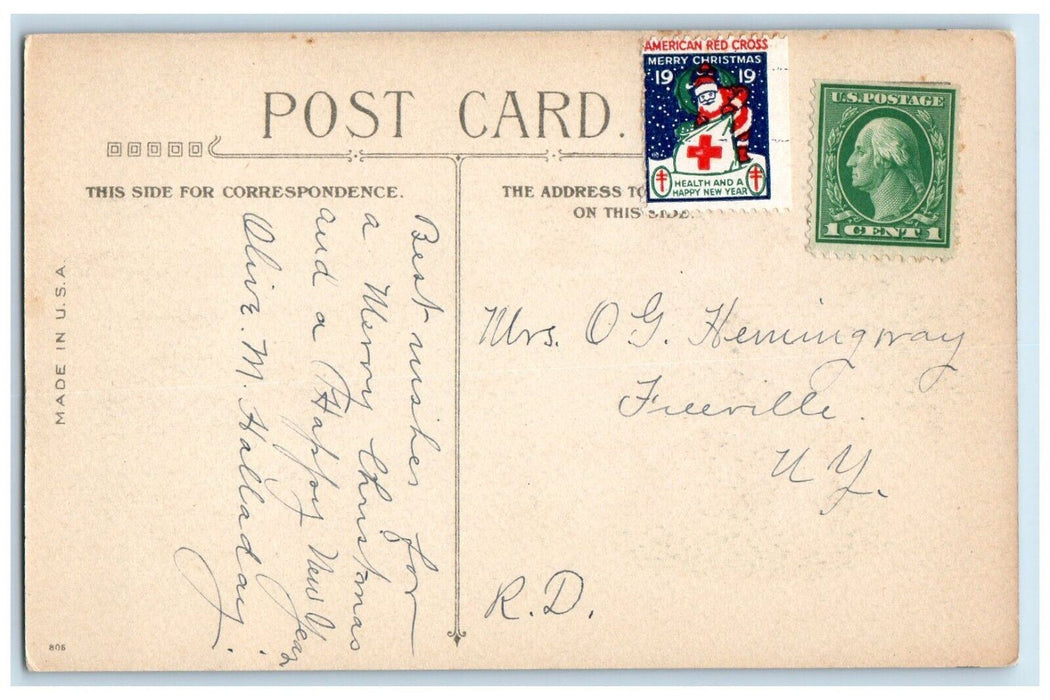 POST CARD.
THIS SIDE FOR CORRESPONDENCE.
THE ADDRESS TO
ON THIS SIDE.
MADE IN U.S.A.
806
AMERICAN RED CROSS
MERRY CHRISTMAS
19 19
HEALTH AND A
HAPPY NEW YEAR
U.S. POSTAGE
1 CENT 1
Best wishes for
a Merry Christmas
and a Happy New Year
Olive. M. Halladay.
Mrs. O G. Hemingway
Freeville.
N Y.
R. D.